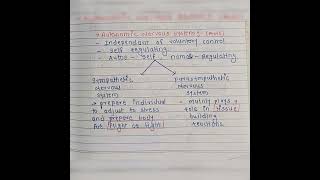 Autonomic nervous system (ANS)
- Independant of voluntary control
- Self regulating
- Auto - Self, nomos - Regulating
Sympathetic nervous system
→ prepare individual to adjust to stress and prepare body for flight or fight
parasympathetic nervous system
→ mainly plays role in tissue building reactions